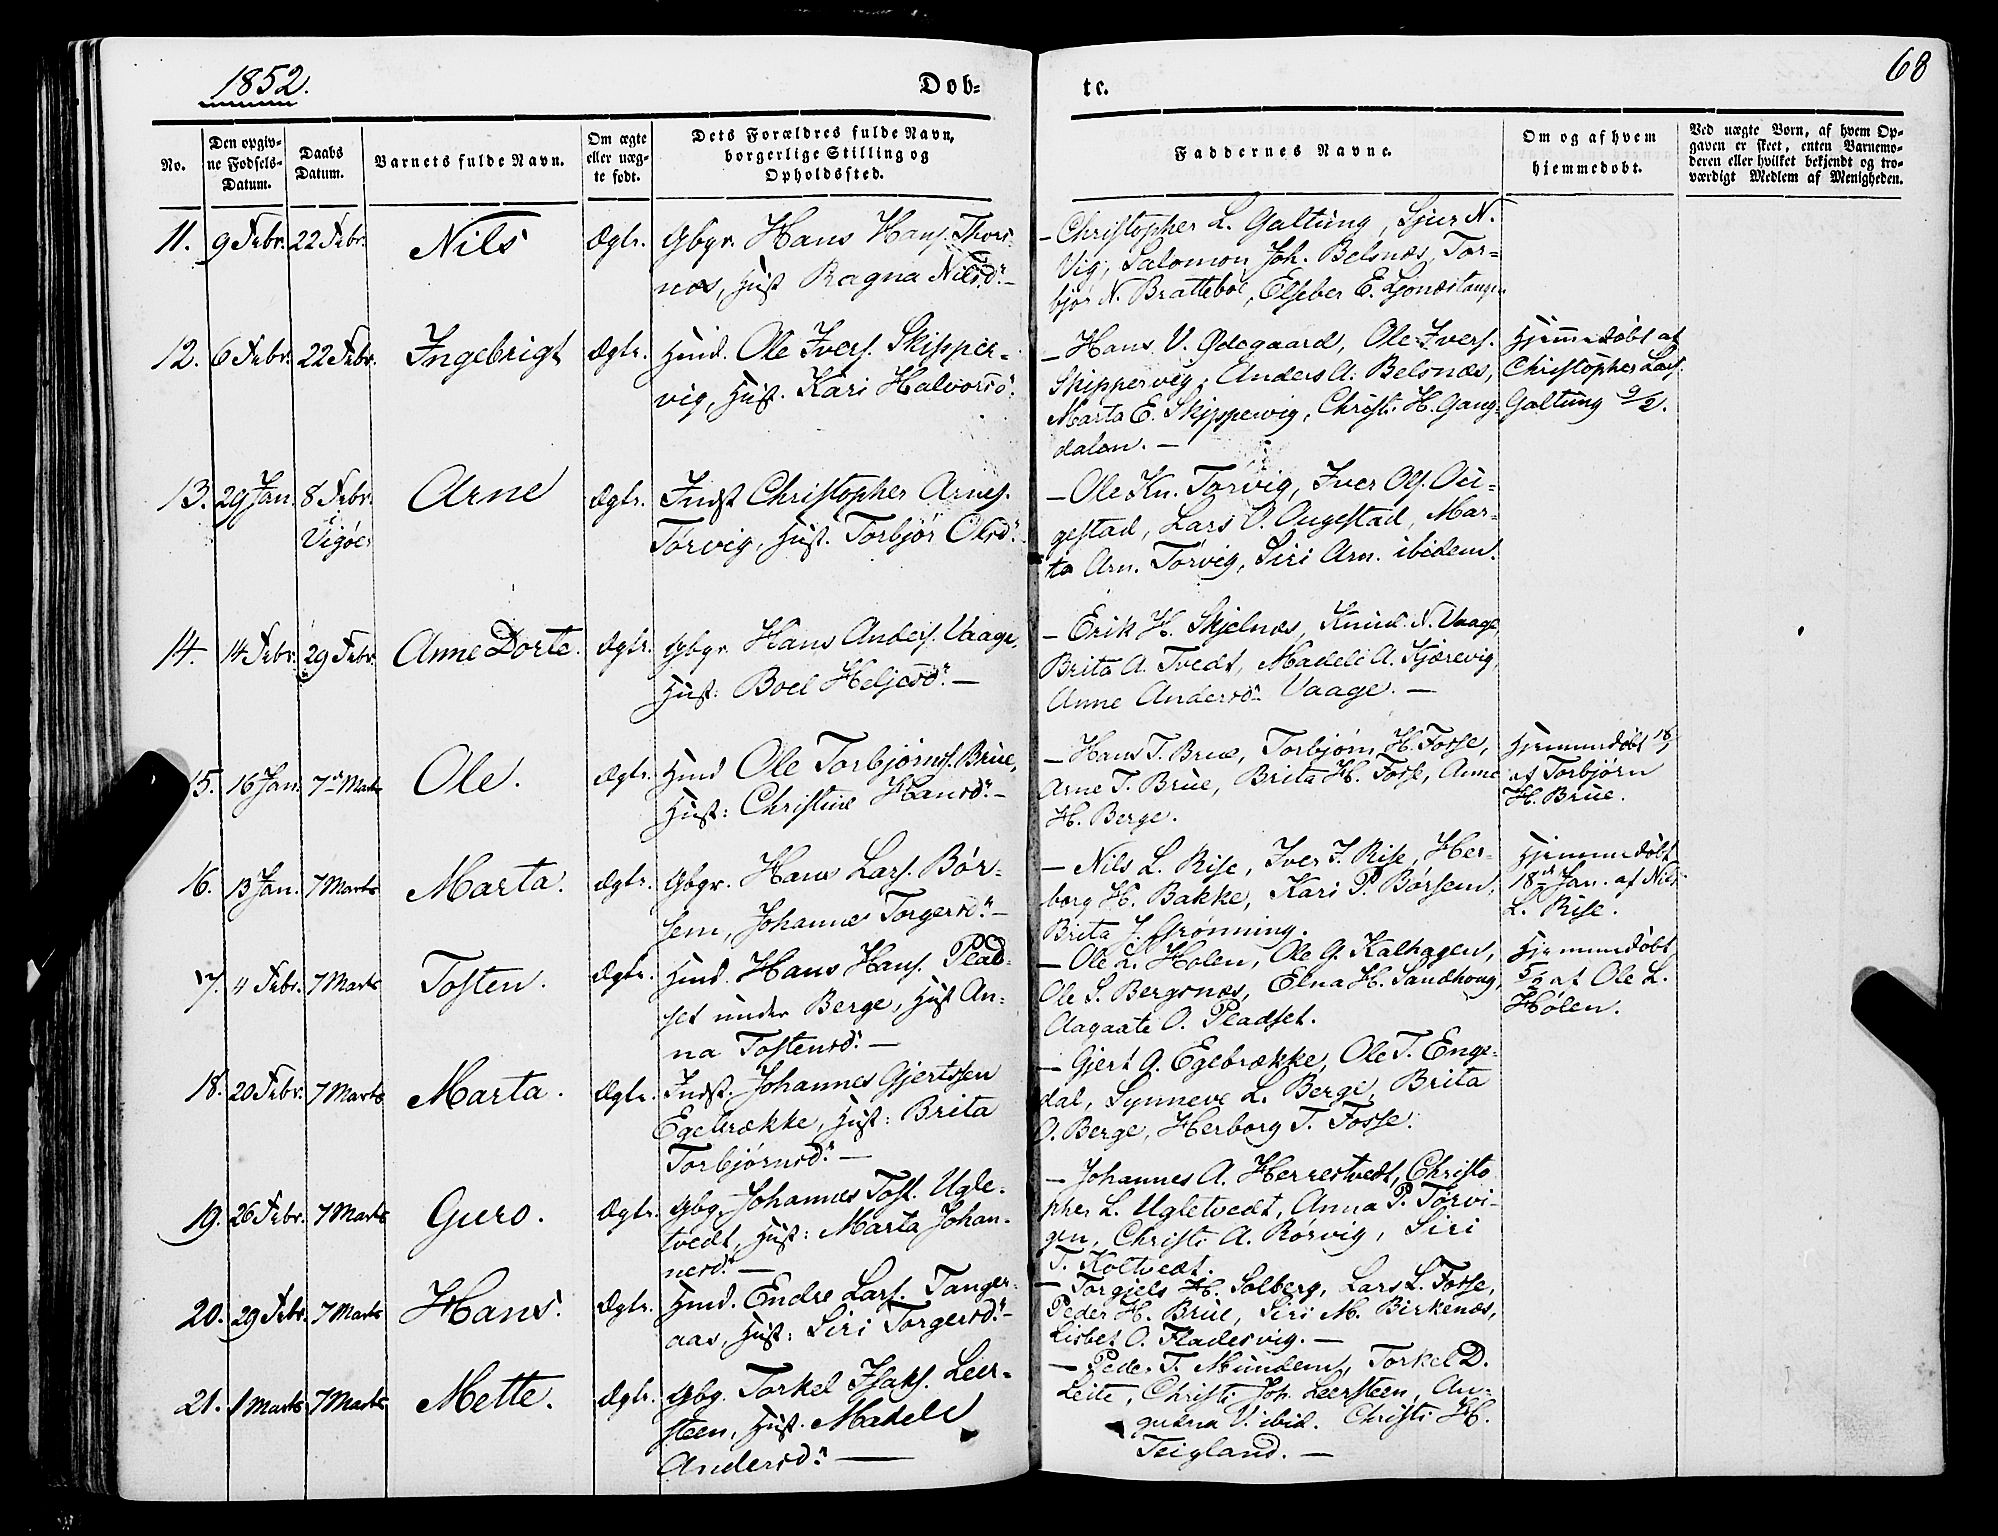 1852.
Døb-
te.
68
No.
Den opgiv-
ne Fødsels-
Datum.
Daabs
Datum.
Barnets fulde Navn.
Om ægte
eller uæg-
te født.
Dets Forældres fulde Navn,
borgerlige Stilling og
Opholdssted.
Faddernes Navne.
Om og af hvem
hjemmedøbt.
Ved uægte Børn, af hvem Op-
gaven er skeet, enten Barnemo-
deren eller hvilket bekjendt og tro-
værdigt Medlem af Menigheden.
11. 9 Febr. 22 Febr. Nils Ægte. Gbgr. Hans Hans.
næs, Hust Ragna Nilsd:
- Christopher L. Galtung, Sjur N.
Vig, Salomon Joh. Belsnæs, Tor-
bjør N. Bratteboe, Elseber E.
12. 6 Febr. 22 Febr. Ingebrigt Ægte. Hmd. Ole Ivers. Skipper-
vig, Hust. Kari Halvorsd:
- Hans V. Ødegaard, Ole Ivers.
Skippervig, Anders A. Belsnæs,
Marta E. Skippervig, Christi H. Gang-
dalen. -
Hjemmedøbt af
Christopher Lars.
Galtung 9/2.
13. 29 Jan. 8 Febr. Arne Ægte. Indst Christopher Arnes.
i Vigøer
Tørvig, Hust. Torbjør Olsd:
- Ole Kn. Tørvig, Iver Ols. Au-
gestad, Lars O. Augestad, Mar-
ta Arn. Tørvig, Siri Arn. ibidem.
14. 14 Febr. 29 Febr. Anne Dorte. Ægte. Gbgr. Hans Anders. Vaage,
Hust: Boel Heljesd: -
- Erik H. Skjelnæs, Knud N. Vaage,
Brita A. Tvedt, Madeli A. Kjærevig,
Anne Andersd: Vaage. -
15. 16 Jan. 7de Marts Ole. Ægte. Hmd Ole Torbjørns. Brue,
Hust: Christine Hansd: -
- Hans T. Brue, Torbjørn H. Fosse,
Arne T. Brue, Brita H. Fosse, Anne
H. Berge.
Hjemmedøbt 18/1
af Torbjørn
H. Brue.
16. 13 Jan. 7 Marts Marta. Ægte. Gbgr. Hans Lars. Bør-
sem, Johanne Torgersd: -
- Nils L. Rise, Iver I. Rise, Her-
borg H. Bakke, Kari P. Børsem,
Brita J. Grønning.
Hjemmedøbt
18de Jan. af Nils
L. Rise.
17. 4 Febr. 7 Marts Tosten. Ægte. Hmd. Hans Hans. Plad-
set under Berge, Hust An-
na Tostensd: -
- Ole L. Holen, Ole G. Kalhagen,
Ole S. Bergsnæs, Elna H. Sandhoug,
Aagaate O. Pladset.
Hjemmedøbt
5/2 af Ole L.
Hølen.
18. 20 Febr. 7 Marts Marta. Ægte. Indst. Johannes Gjertssen
Egebrække, Hust: Brita
Torbjørnsd: -
- Gjert A. Egebrække, Ole T. Enge-
dal, Synneve L. Berge, Brita
O. Berge, Herborg T. Fosse.
19. 26 Febr. 7 Marts Guro. Ægte. Gbg. Johannes Tost. Ugle-
tvedt, Hust: Marta Johan-
nesd: -
- Johannes A. Herrestvedt, Christo
pher L. Ugletvedt, Anna P. Tørvi-
gen, Christi A. Rørvig, Siri
T. Koltvedt.
20. 29 Febr. 7 Marts Hans. Ægte. Hmd. Endre Lars. Tanger-
aas, Hust: Siri Torgersd: -
- Torgjels H. Solberg, Lars L. Fosse,
Peder H. Brue, Siri M. Birkenæs,
Lisbet O. Fladesvig. -
21. 1 Marts 7 Marts Mette. Ægte. Gbg. Torkel Isaks. Leer-
steen, Hust. Madele
Andersd: -
- Peder T. Mundem, Torkel D.
Leite, Christi Joh. Leersteen, An-
gudna V. ibid. Christi H.
Teigland. -